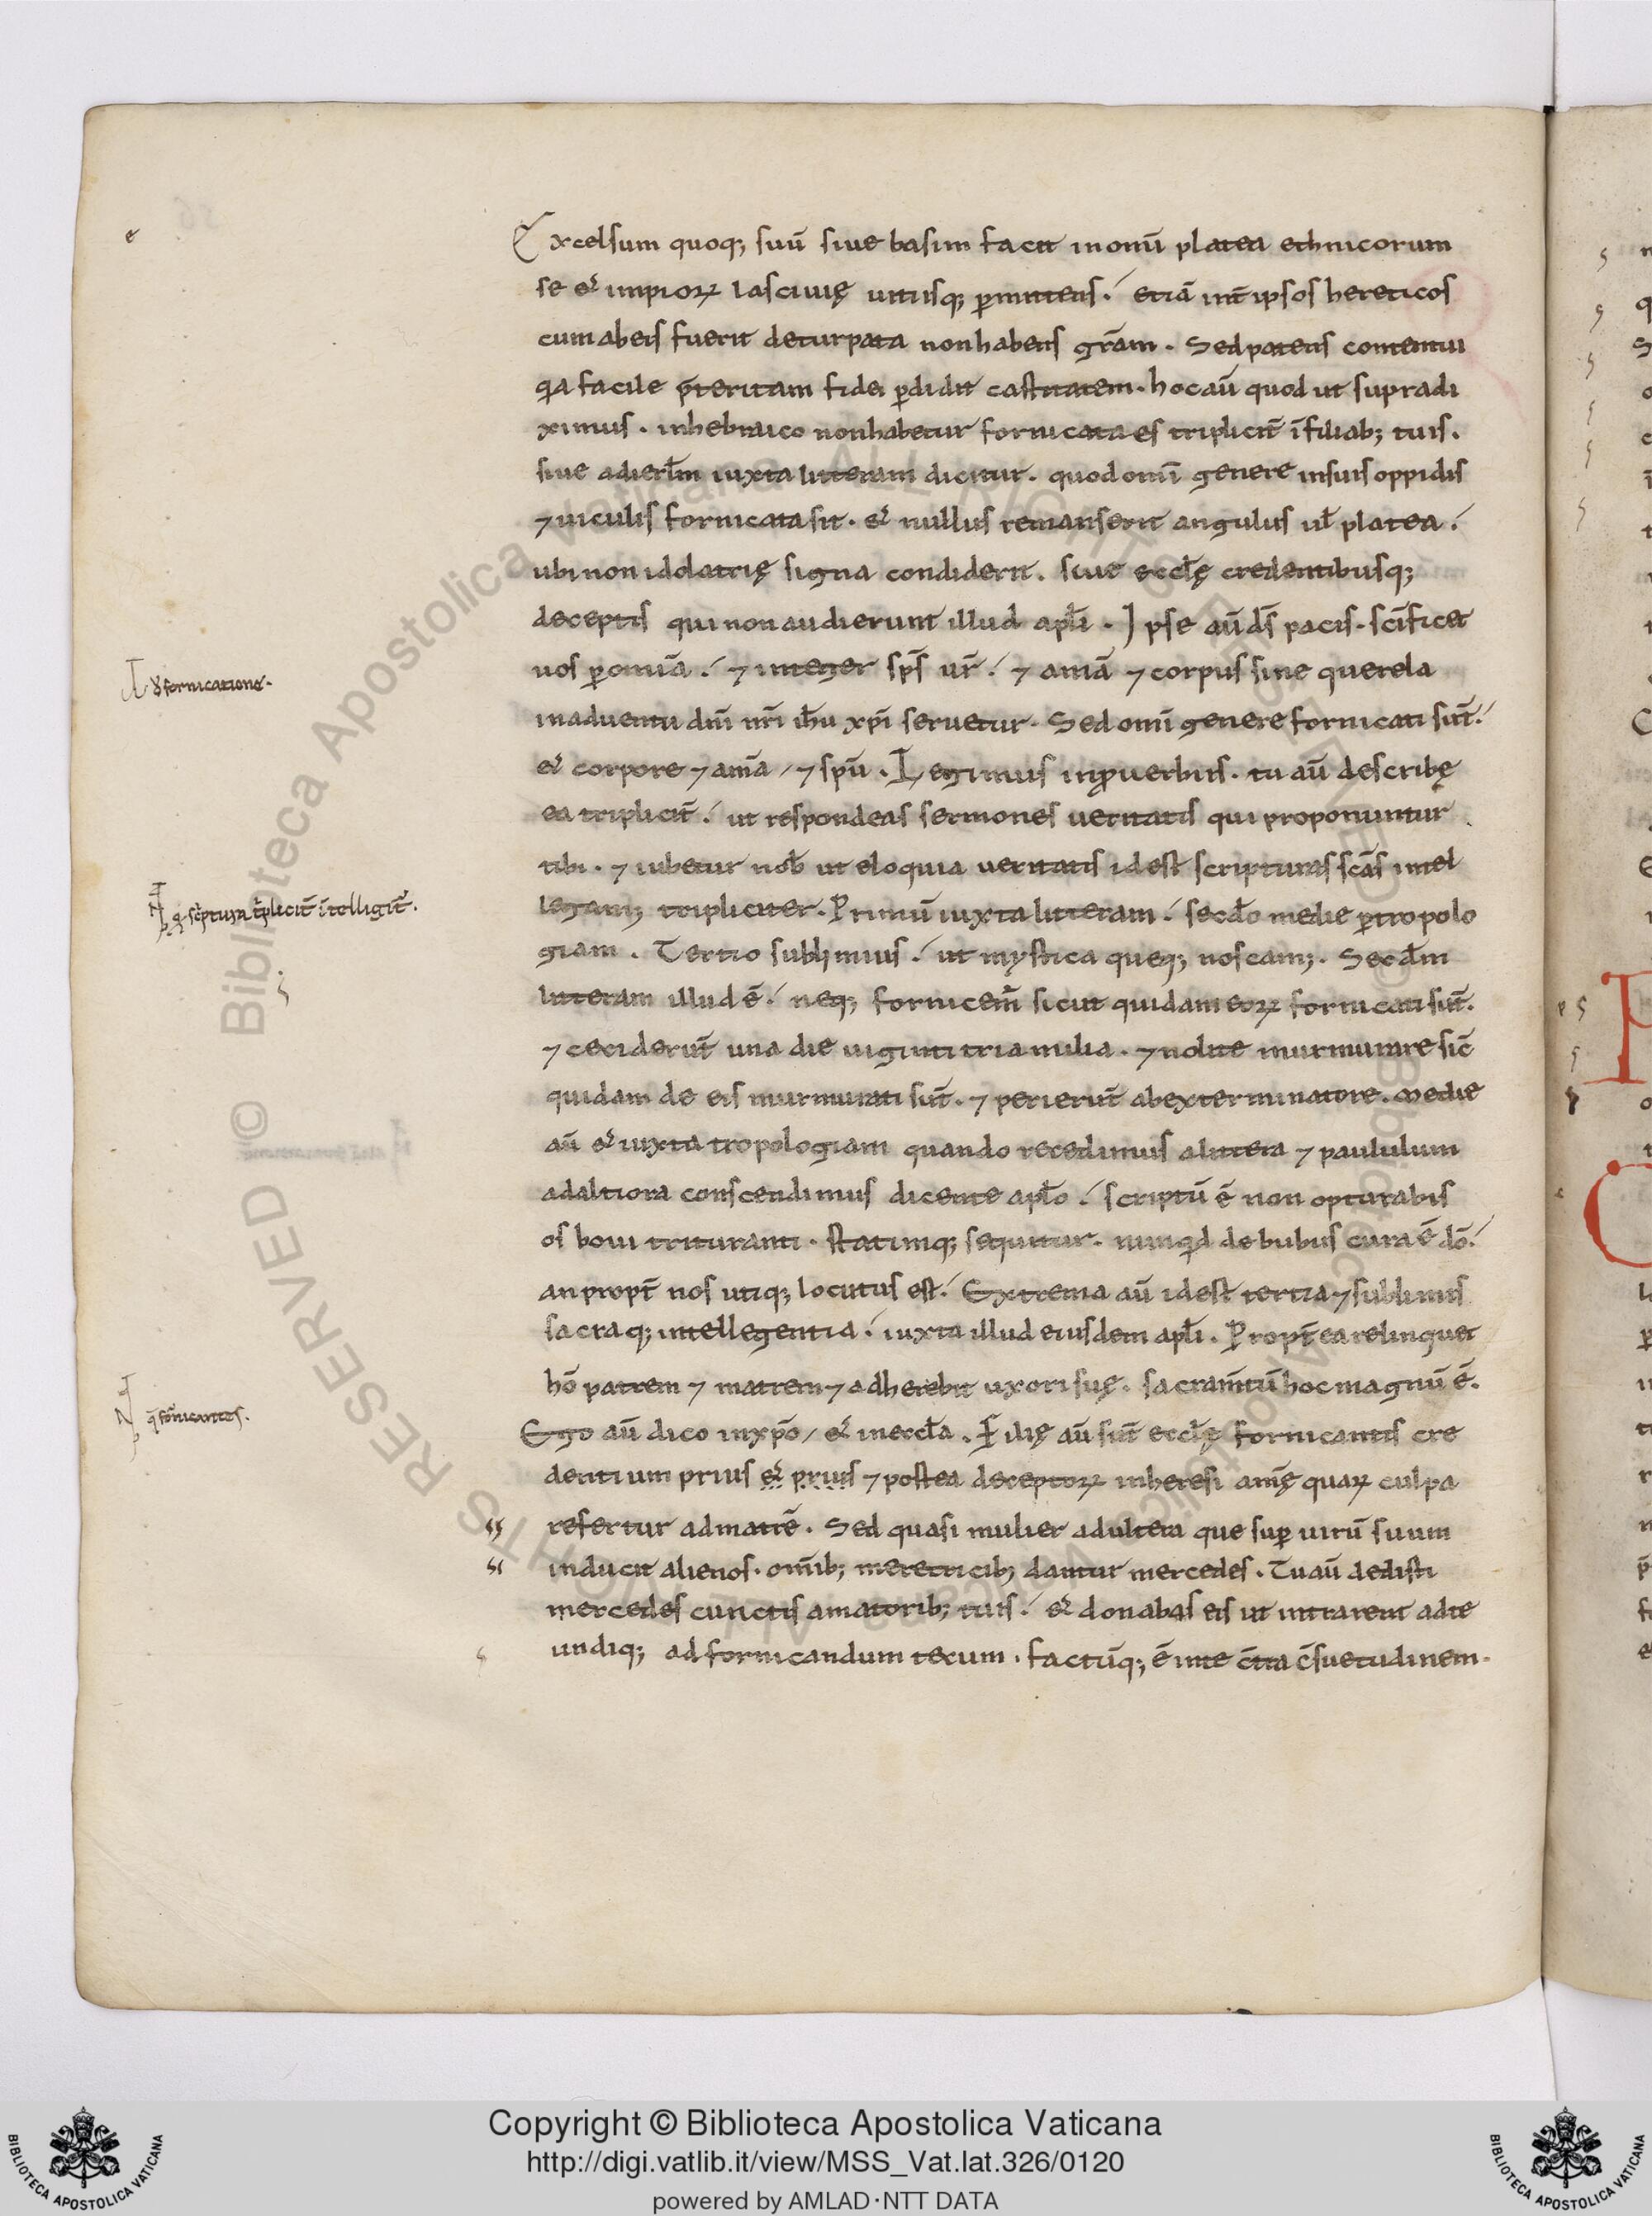 Excelsum quoq; suū siue basim facit in om̄i platea ethnicorum
se & impioꝝ lasciuię uitiisq; ꝑmittens. etiā int̄ ipsos hereticos
cum ab eis fuerit deturpata non habens gr̄am. Sed patens contemtui
qa facile p̄teritam fidei ꝑdidit castitatem. hoc aū quod ut supra di
ximus. in hebraico non habetur fornicata es triplicit̄ ī filiab; tuis.
siue ad ierl̄m iuxta litteram dicitur. quod om̄i genere in suis oppidis
⁊ uiculis fornicata sit. & nullus remanserit angulus ul̄ platea.
ubi non idolatrię signa condiderit. siue eccl̄ę credentibusq;
deceptis qui non audierunt illud apl̄i. Ipse aū ds̄ pacis. sc̄ificet
uos ꝑ om̄ia. ⁊ integer sps̄ ur̄. ⁊ anīa ⁊ corpus sine querela
in aduentu dn̄i nr̄i ih̄u xp̄i seruetur. Sed om̄i genere fornicati sūt.
& corpore ⁊ anīa / ⁊ spū. Legimus in ꝓuerbiis. tu aū describę
ea triplicit̄. ut respondeas sermones ueritatis qui proponuntur
tibi. ⁊ iubetur nob̄ ut eloquia ueritatis id est scripturas sc̄as intel
legam; tripliciter. Primū iuxta litteram. secd̄o medie ꝑ tropolo
giam. Tertio sublimius. ut mystica queq; noscam;. Secd̄m
litteram illud ē. neq; fornicem̄ sicut quidam eoꝝ fornicati sūt.
⁊ ceciderūt una die uiginti tria milia. ⁊ nolite murmurare sic̄
quidam de eis murmurati sūt. ⁊ perierūt ab exterminatore. Medie
aū & iuxta tropologiam quando recedimus a littera ⁊ paululum
ad altiora conscendimus dicente apl̄o. scriptū ē non opturabis
os boui trituranti. statimq; sequitur. nunqid de bubus cura ē dō.
an propt̄ nos utiq; locutus est. Extrema aū id est tertia ⁊ sublimis
sacraq; intellegentia. iuxta illud eiusdem apl̄i. Propt̄ea relinquet
hō patrem ⁊ matrem ⁊ adherebit uxori suę. sacram̄tū hoc magnū ē.
Ego aū dico in xp̄o / & in eccl̄a. Filię aū sūt eccl̄ę fornicantis cre
dentium prius & prius ⁊ postea deceptoꝝ in heresi anīę quaꝝ culpa
refertur ad matrē. Sed quasi mulier adultera que suꝑ uirū suum
inducit alienos. om̄ib; meretricib; dantur mercedes. Tu aū dedisti
mercedes cunctis amatorib; tuis. & donabas eis ut intrarent ad te
undiq; ad fornicandum tecum. factūq; ē in te c̄tra c̄suetudinem.
fornicatione.
q̄ sc̄ptura t̄plicit̄ ītelligit̄.
q̄ fōnicantes.
Biblioteca Apostolica Vaticana ALL RIGHTS RESERVED ©
Copyright © Biblioteca Apostolica Vaticana
http://digi.vatlib.it/view/MSS_Vat.lat.326/0120
powered by AMLAD·NTT DATA
BIBLIOTECA APOSTOLICA VATICANA
BIBLIOTECA APOSTOLICA VATICANA